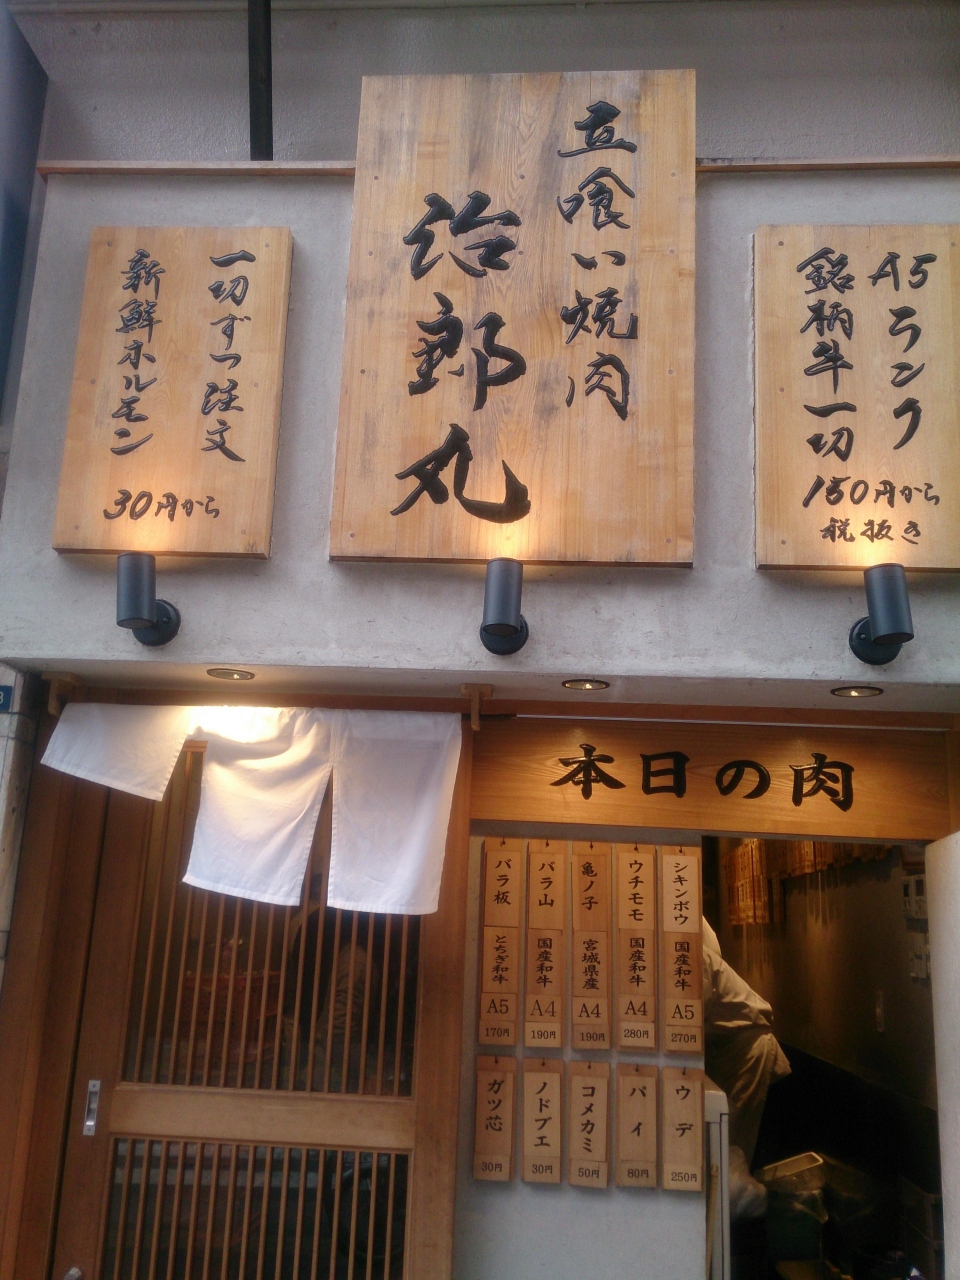 立喰い焼肉
治郎丸
A5ランク
銘柄牛一切
150円から
税抜き
一切ずつ注文
新鮮ホルモン
30円から
本日の肉
シキンボウ 国産和牛 A5 270円
ウチモモ 国産和牛 A4 280円
亀ノ子 宮城県産 A4 190円
バラ山 国産和牛 A4 190円
バラ板 とちぎ和牛 A5 170円
ウデ 250円
パイ 80円
コメカミ 50円
ノドブエ 30円
ガツ芯 30円